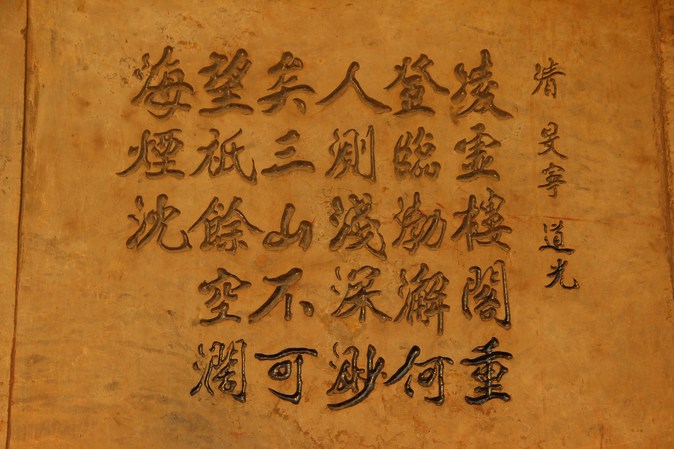 清 旻寧 道光
凌虚樓閣重
登臨勃澥何
人測淺深渺
矣三山不可
望祇餘空濶
海煙沈